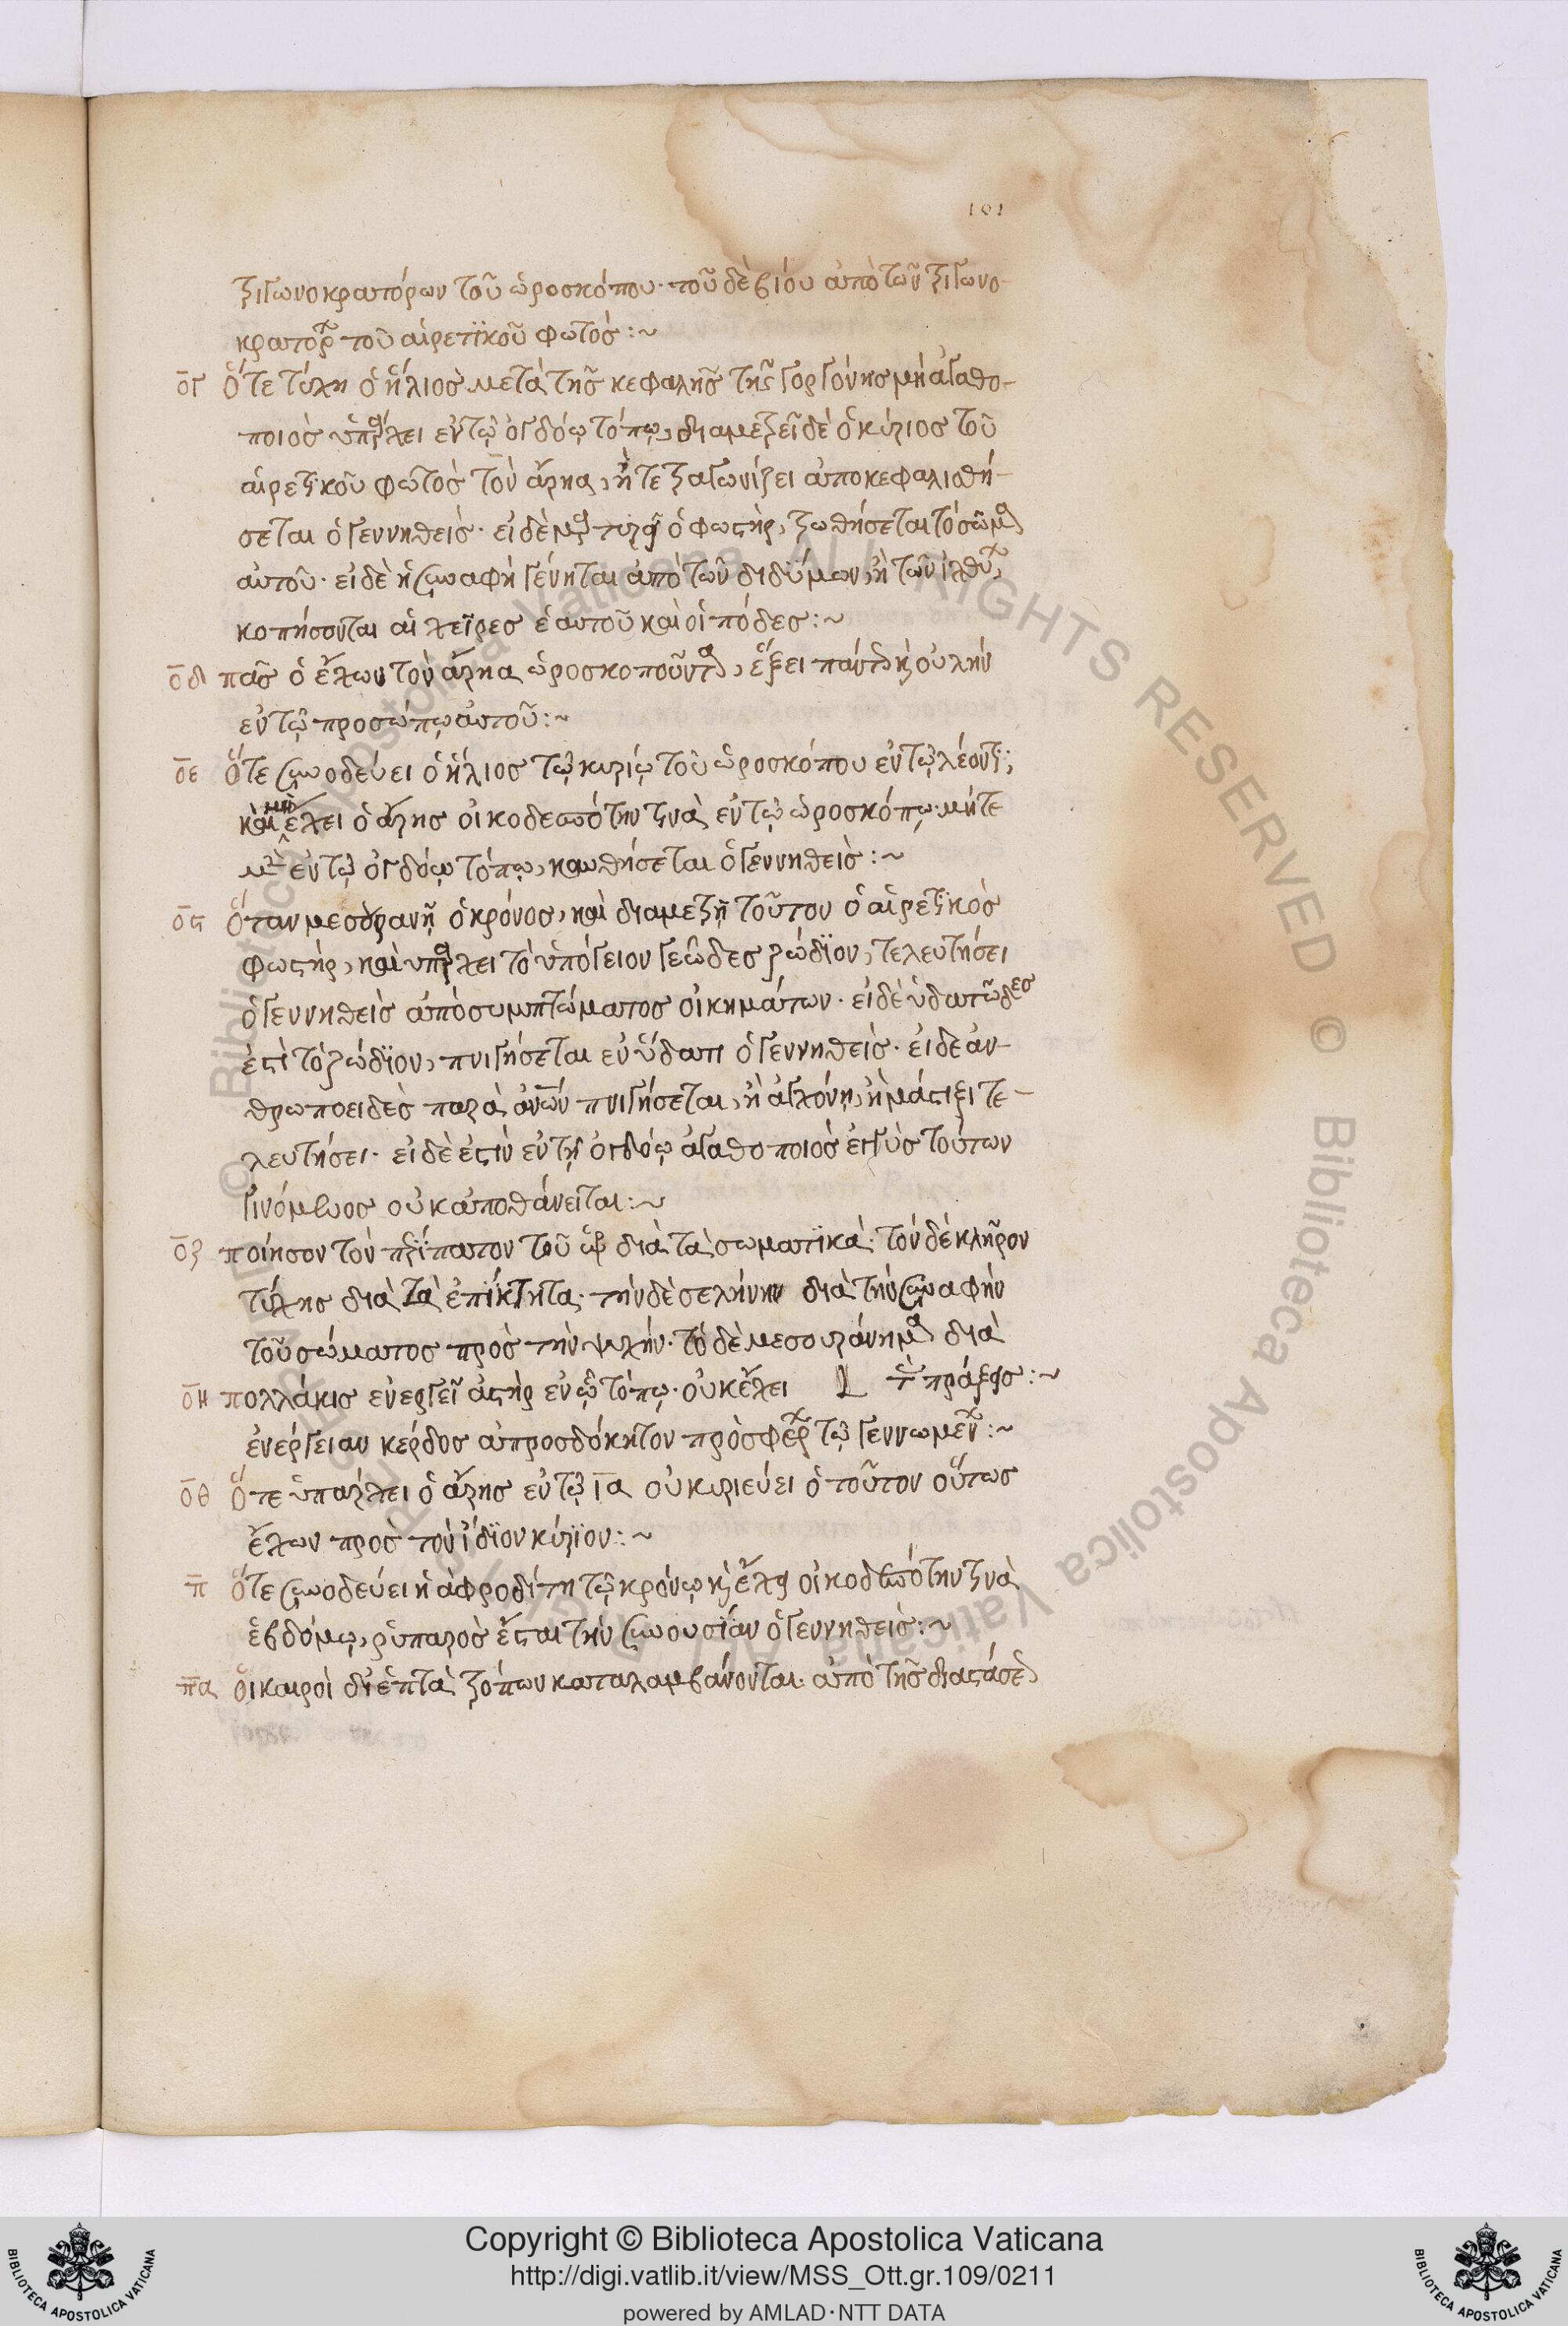 101
τριγωνοκρατόρων τοῦ ὡροσκόπου· τοῦ δὲ βίου ἀπὸ τῶν τριγωνο-
κρατορ τοῦ αἱρετϊκοῦ φωτός:~
ογ ὅτε τύχη ὁ ἥλιος μετὰ τῆς κεφαλῆς τῆς γοργόνης μὴ ἀγαθο-
ποιὸς ὑπάρχει ἐν τῷ ὀγδόῳ τόπῳ, διαμετρεῖ δὲ ὁ κύριος τοῦ
αἱρετικοῦ φωτὸς τὸν ἄρηα, ἢ τετραγωνίζει ἀποκεφαλισθή-
σεται ὁ γεννηθείς· εἰ δὲ ὁ φωστήρ, τρωθήσεται τὸ σῶμα
αὐτοῦ· εἰ δὲ ἡ συναφὴ γένηται ἀπὸ τῶν διδύμων, ἢ τῶν ἰχθυ,
κοπήσονται αἱ χεῖρες ἑαυτοῦ καὶ οἱ πόδες:~
οδ πᾶς ὁ ἔχων τὸν ἄρηα ὡροσκοποῦντα, ἕξει πάντως οὐλὴν
ἐν τῷ προσώπῳ αὐτοῦ:~
οε ὅτε συνοδεύει ὁ ἥλιος τῷ κυρίῳ τοῦ ὡροσκόπου ἐν τῷ λέοντι;
καὶ μὴ ἔχει ὁ ἄρης οἰκοδεσπότην τινὰ ἐν τῷ ὡροσκόπῳ· μήτε
μὴν ἐν τῷ ὀγδόῳ τόπῳ, καυθήσεται ὁ γεννηθείς:~
ος ὅταν μεσουρανῇ ὁ κρόνος, καὶ διαμετρῇ τοῦτον ὁ αἱρετικὸς
φωστήρ, καὶ ὑπάρχει τὸ ὑπόγειον γεῶδες ζώδϊον, τελευτήσει
ὁ γεννηθεὶς ἀπὸ συμπτώματος οἰκημάτων· εἰ δὲ ὑδατῶδες
ἐστὶ τὸ ζώδϊον, πνιγήσεται ἐν ὕδατι ὁ γεννηθείς· εἰ δὲ ἀν-
θρωποειδὲς παρὰ ἀνῶν πνιγήσεται, ἢ ἀγχόνῃ, ἢ μάστιξι τε-
λευτήσει· εἰ δὲ ἐστὶν ἐν τῷ ὀγδόῳ ἀγαθοποιὸς ἐγγὺς τούτων
γινόμενος οὐκ ἀποθάνειται:~
οζ ποίησον τὸν περίπατον τοῦ ὡρ διὰ τὰ σωματϊκά· τὸν δὲ κλῆρον
τύχης διὰ τὰ ἐπίκτητα· τὴν δὲ σελήνην διὰ τὴν συναφὴν
τοῦ σώματος πρὸς τὴν ψυχήν· τὸ δὲ μεσουράνημα διὰ
τὰς πράξεις:~
οη πολλάκις ἐνεργεῖ ἀστὴρ ἐν ᾧ τόπῳ· οὐκ ἔχει
ἐνέργειαν κέρδος ἀπροσδόκητον προσφερ τῷ γεννωμεν:~
οθ ὅτε ὑπάρχει ὁ ἄρης ἐν τῷ ια οὐ κυριεύει ὁ τοῦτον οὕτως
ἔχων πρὸς τὸν ἴδϊον κύρϊον:~
π ὅτε συνοδεύει ἡ ἀφροδίτη τῷ κρόνῳ καὶ ἔχει οἰκοδεσπότην τινὰ
ἑβδόμῳ, ῥυπαρὸς ἔσται τὴν συνουσίαν ὁ γεννηθείς:~
πα οἱ καιροὶ δι ἑπτὰ τρόπων καταλαμβάνονται· ἀπὸ τῆς διαστάσεως
Copyright © Biblioteca Apostolica Vaticana
http://digi.vatlib.it/view/MSS_Ott.gr.109/0211
powered by AMLAD·NTT DATA
BIBLIOTECA APOSTOLICA VATICANA
BIBLIOTECA APOSTOLICA VATICANA